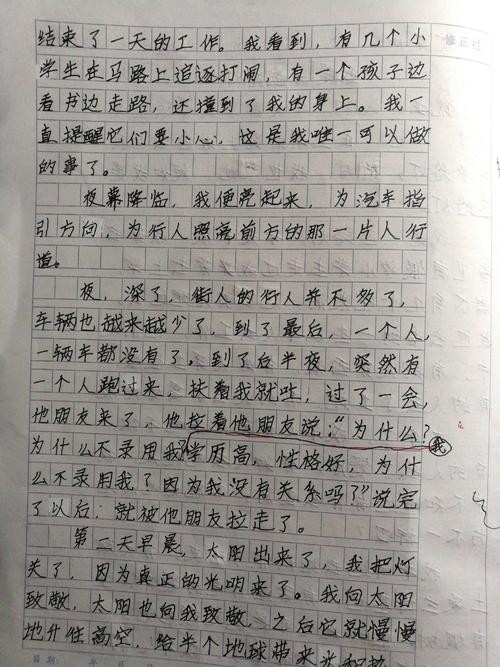 修正栏
结束了一天的工作。我看到，有几个小
学生在马路上追逐打闹，有一个孩子边
看书边走路，还撞到了我的身上。我一
直提醒它们要小心，这是我唯一可以做
的事了。
夜幕降临，我便亮起来，为汽车指
引方向，为行人照亮前方的那一片人行
道。
夜，深了，街人的行人并不多了，
车辆也越来越少了，到了最后，一个人，
一辆车都没有了，到了后半夜，突然有
一个人跑过来，扶着我就吐，过了一会，
他朋友来了，他拉着他朋友说：“为什么？
为什么不录用我？学历高，性格好，为什
我
么不录用我？因为我没有关系吗？”说完
了以后，就被他朋友拉走了。
第二天早晨，太阳出来了，我把灯
关了，因为真正的光明来了。我向太阳
致敬，太阳也向我致敬，之后它就慢慢
地升往高空，给半个地球带来光和热
日期：